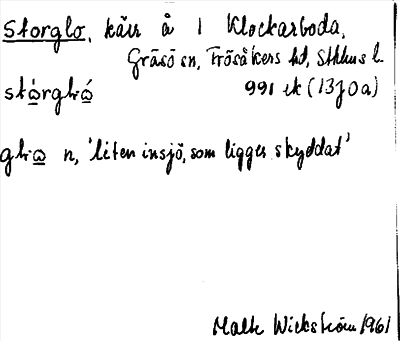 Storglo, kärr å 1 Klockarboda,
Gräsö sn, Frösåkers hd, Sthlms l.
991 ek (13J0a)
n, 'liten insjö, som ligger skyddat'
Malte Wickström 1961